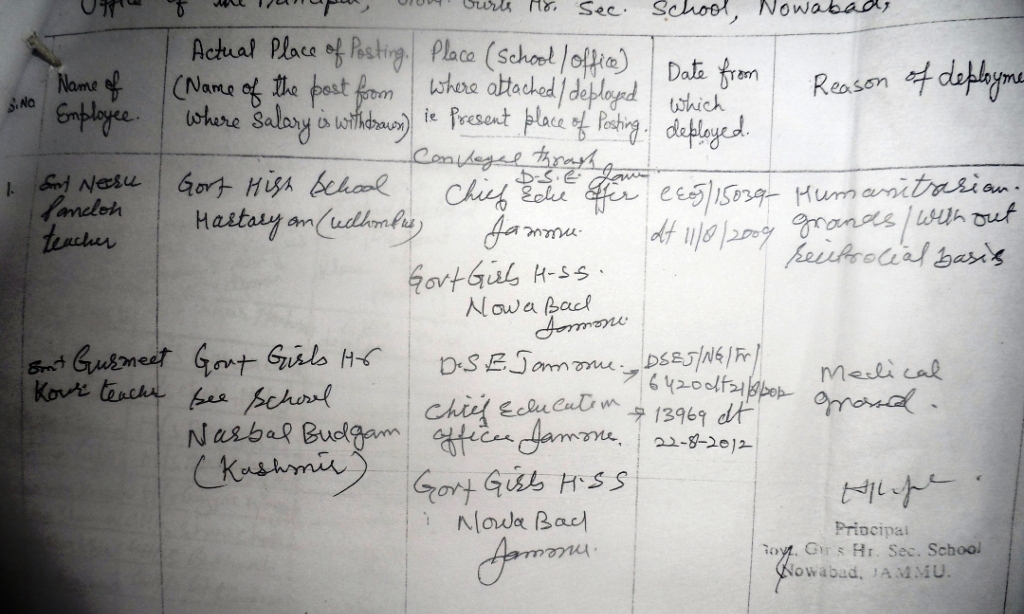 Office of the Principal, Govt. Girls Hr. Sec. School, Nowabad,
S.No
Name of
Employee.
Actual Place of Posting.
(Name of the post from
where Salary is withdrawn)
Place (School/office)
where attached/deployed
ie Present place of Posting.
Date from
which
deployed.
Reason of deployme
1.
Smt Neeru
teacher
Govt High School
(udhmpur)
through
D.S.E. Jammu
Chief Edu Offier
Jammu.
Govt Girls H-SS.
Nowa Bad
Jammu.
CEOJ/15039-
dt 11/8/2009
Humanitarian.
grounds/with out
basis
Smt Gurmeet
Kour teacher
Govt Girls Hr
See School
Narbal Budgam
(Kashmir)
D.S.E Jammu.
Chief Education
officer Jammu.
Govt Girls H.SS
Nowa Bad
Jammu.
DSEJ/NG/Fr/
→ 13969 dt
22-8-2012
Medical
ground.
Principal
Govt. Girls Hr. Sec. School
Nowabad, JAMMU.